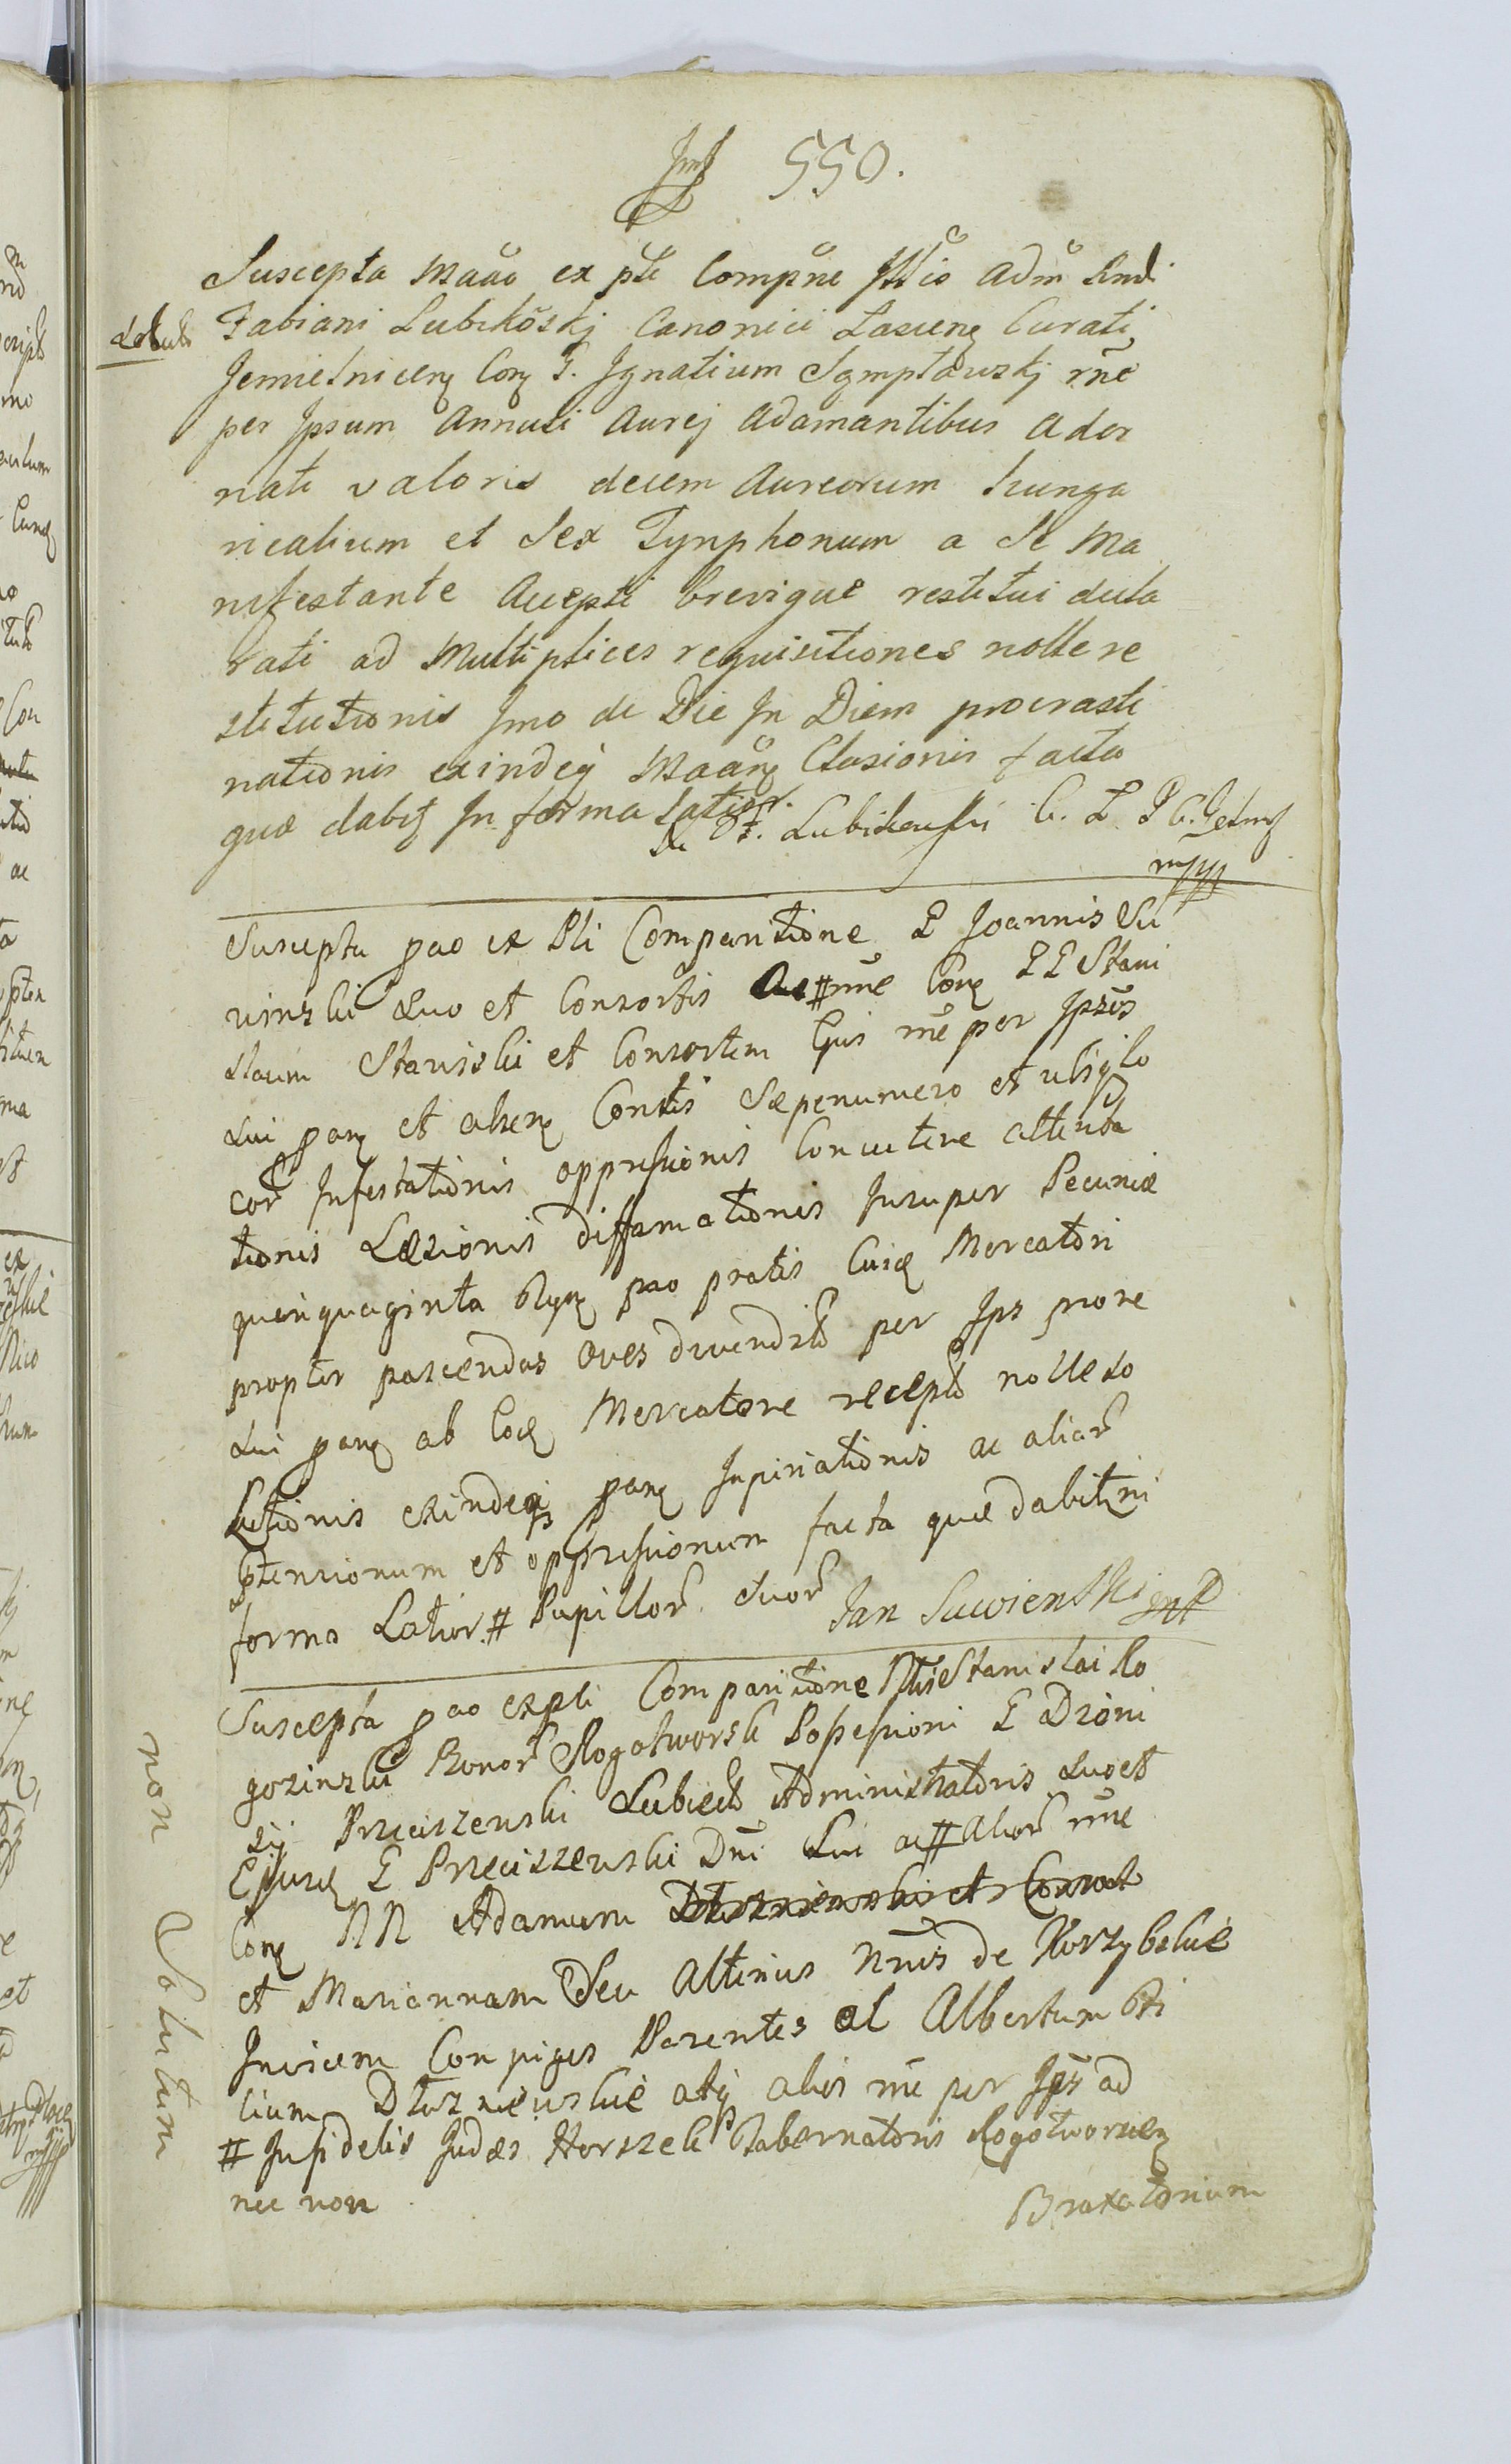 550.
Suscepta Maão ex pte Compne Adm Rndi
Fabiani Lubikõskj Canonici Lascien Curati
Jemielnicen Con G. Ignatium Sgmptauskj rnẽ
per Ipsum Annuli Aurej Adamantibus Ador
nati valoris decem Aureorum hunga
ricalium et Sex Tynphonum a Se Ma
nifestante Accepti brevique restitui decla
rati ad Multiplices requisitiones nolle re
stitutionis Imo de Die In Diem procrasti
nationis exindeq Maãn Elusionis facta
quæ dabit In forma Latior.
X F. Lubikowski C. L. P C. Jelm
mpp
Suscepta pao ex Pti Comparitione G Joannis Su
winski Suo et Consortis Ac # nne Con G G Stani
slaum Stawiski et Consortem Ejus rnẽ per Ipsos
Sui pan et alien Contis Sæpenumero et ubiqlo
cor Infestationis oppressionis Concutere attenta
tionis Læsionis diffamationis Insuper Pecuniæ
quinquaginta pao pratis Cuid Mercatori
propter pascendas Oves divendit per Ips more
Sui pan ab Eod Mercatore recept nolle so
lutionis exindeq pan Injuriationis ac aliar
ptensionum et oppressionum facta quæ dabit ni
forma Latior. # Pupillor. suor Jan Suwienski mp
Suscepta pao ex pti Comparitione Nlis Stanislai Ro
gozinski Bonor Rogotworsk Possessioni G Dioni
sij Przeciszewski Subject Administratoris Suo et
Ejusd G Przeciszewski Dni Sui ac # Alior nne
Con NN Adamum
et Mariannam Seu Alterius Nnis de Korzybskie
Invicem Conjuges Parentes al Albertum fi
lium Dłuzniewskie atq alios rnẽ per Ips ad
# Infidelis Judæi Herszek Tabernatoris Rogotworscien
nec non
Braxatorium
non Solutum